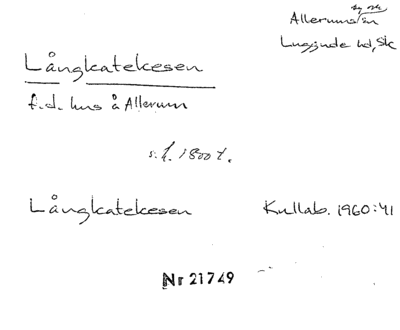 Allerums sn
Luggude hd, Sk
Långkatekesen
f.d. hus å Allerum
s.h. 1800 t.
Långkatekesen Kullab. 1960:41
Nr 21749